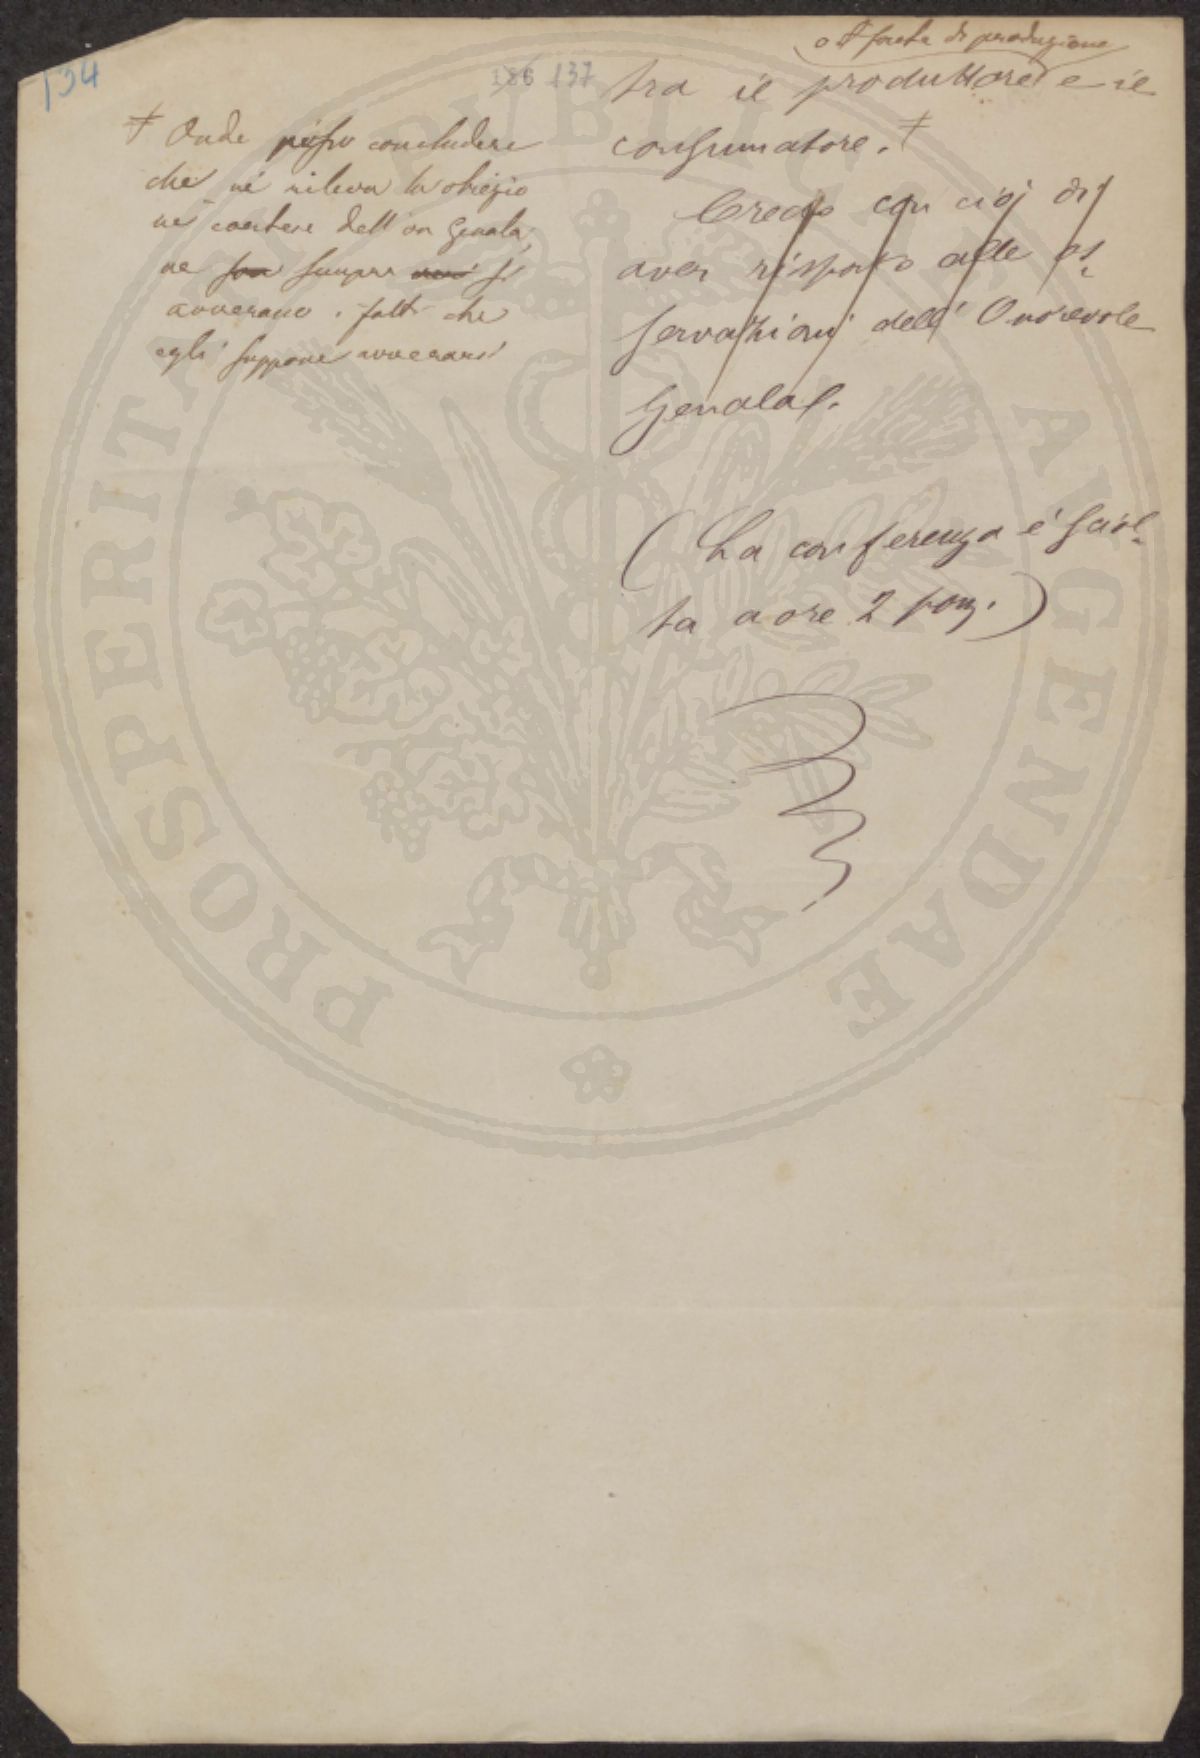 134
186 137
di produzione
tra il produttore e il
consumatore. ‡
Credo con ciò di
aver risposto alle os-
servazioni dell' Onorevole
Genala.
(La conferenza è sciol-
ta a ore 2 pom.)
‡ Onde posso concludere
che nè rileva la obiezio
ne dell'on Genala,
ne son sempre si
avverano i fatti che
egli suppone avverarsi
PUBLICAE
PROSPERITATI
AUGENDAE